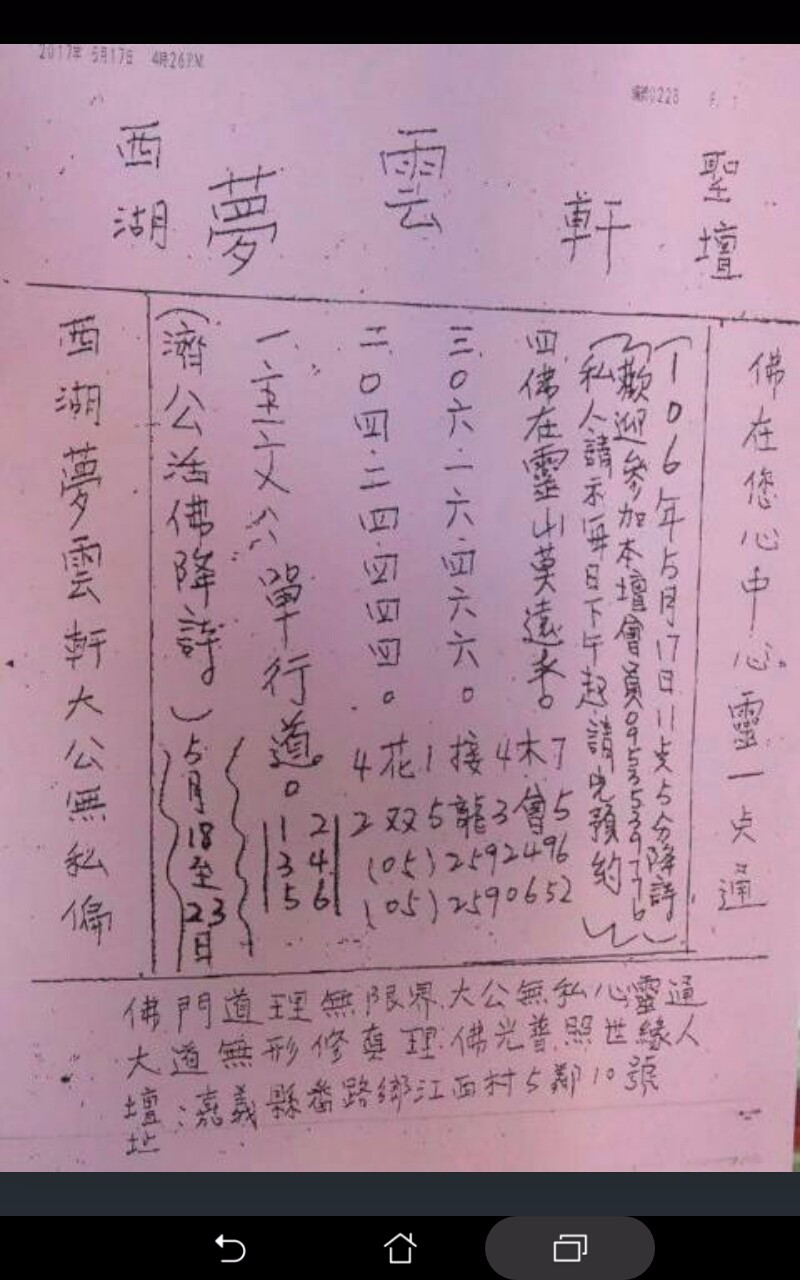 2017年 5月17日 4時26PM
編號0228 P. 1
西湖 夢雲軒 聖壇
佛在您心中心靈一点通
(106年5月17日11点5分降詩)
(歡迎參加本壇會員0953539776
私人請示每日下午起請先預約)
四佛在靈山莫遠考。
三.0六.一六.四六六。
二.0四.二四.四四四。
單行道。
(濟公活佛降詩)
5月18至23日
西湖夢雲軒大公無私偏
4花1接4木7
2双5龍3會5
(05)2592496
(05)2590652
1 2
3 4
5 6
佛門道理無限界.大公無私心靈通
大道無形修真理.佛光普照世緣人
壇址:嘉義縣番路鄉江西村5鄰10號